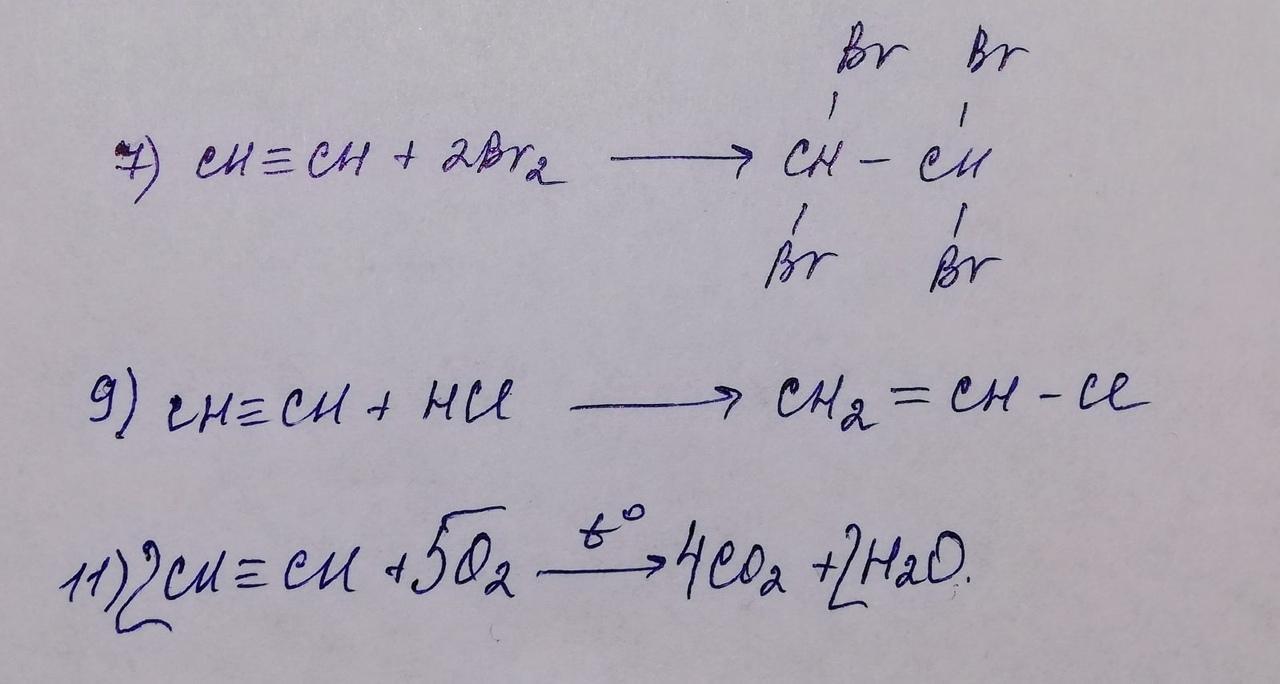 Br Br
7) CH≡CH + 2Br₂ ⟶ CH – CH
Br Br
9) CH≡CH + HCl ⟶ CH₂ = CH – Cl
11) 2CH≡CH + 5O₂ t° ⟶ 4CO₂ + 2H₂O.